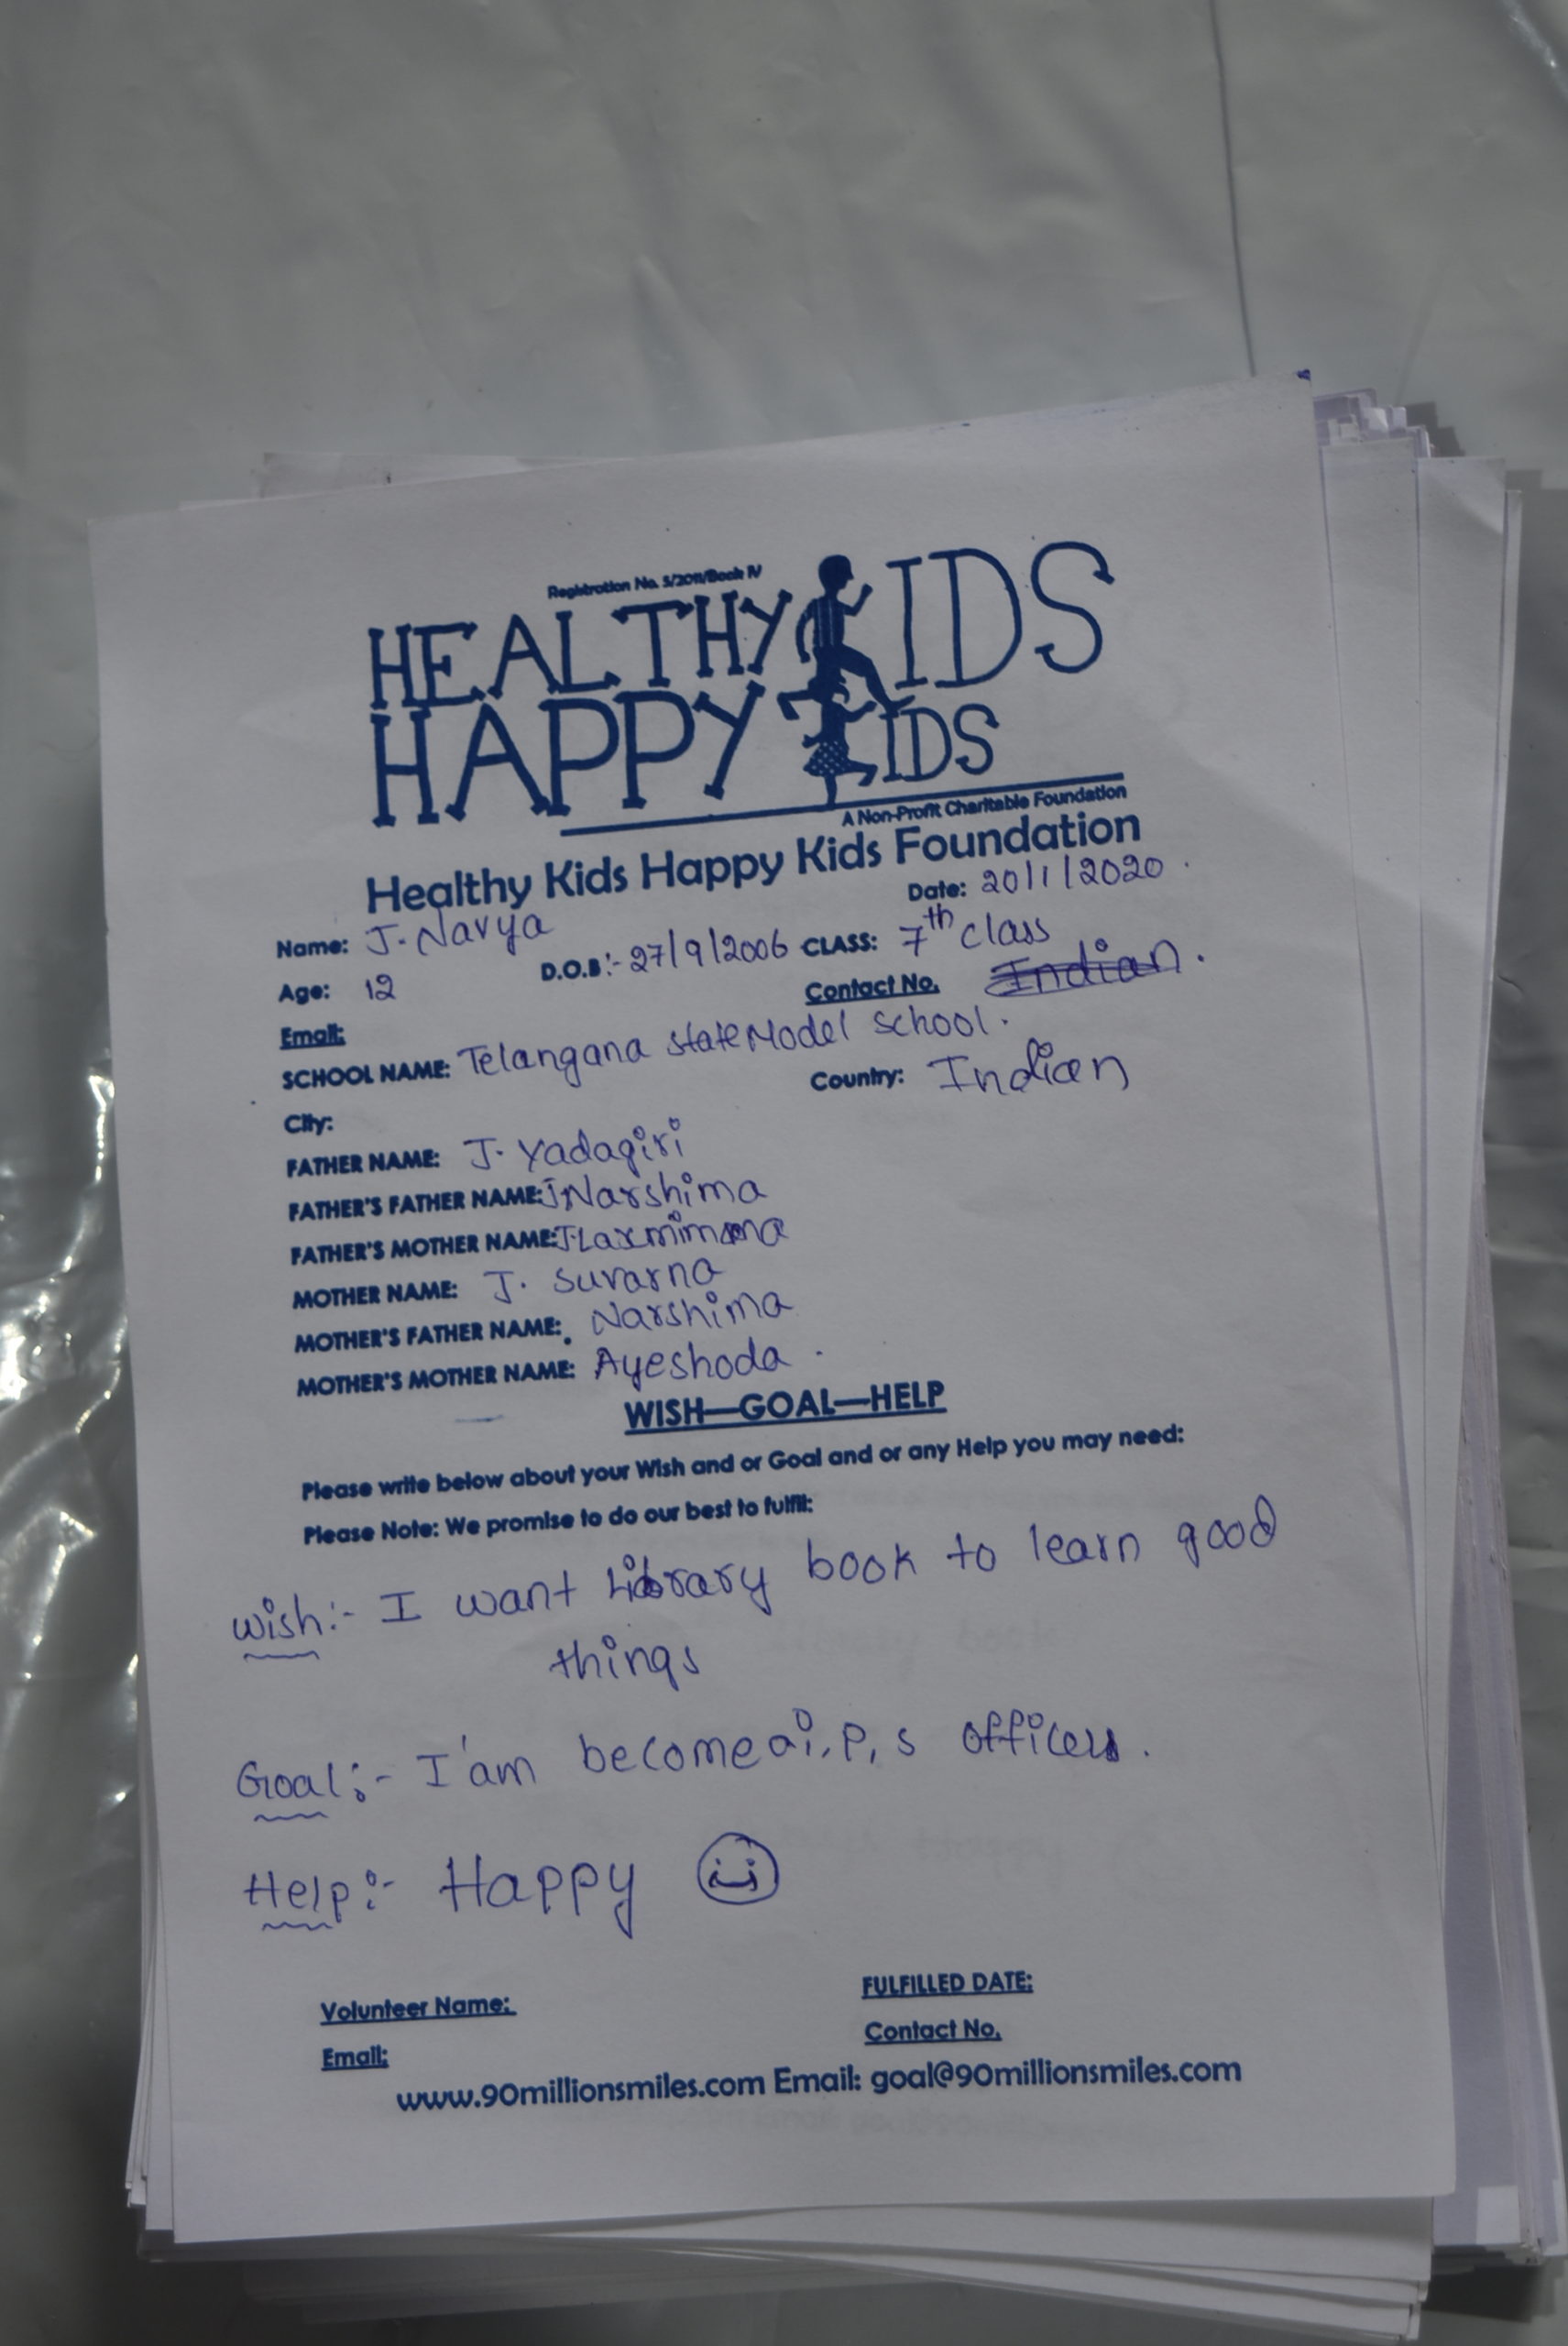 Registration No. 5/2011/Book IV
HEALTHY KIDS
HAPPY KIDS
A Non-Profit Charitable Foundation
Healthy Kids Happy Kids Foundation
Date: 20/1/2020.
Name: J. Navya
D.O.B:- 27/9/2006 CLASS: 7th class
Age: 12
Contact No. Indian.
Email:
SCHOOL NAME: Telangana state Model school.
Country: Indian
City:
FATHER NAME: J. Yadagiri
FATHER'S FATHER NAME: J.Narshima
FATHER'S MOTHER NAME: J.Laxmimma
MOTHER NAME: J. Suvarna
MOTHER'S FATHER NAME: Narshima
MOTHER'S MOTHER NAME: Ayeshoda.
WISH—GOAL—HELP
Please write below about your Wish and or Goal and or any Help you may need:
Please Note: We promise to do our best to fulfil:
Wish:- I want Library book to learn good
things
Goal:- I'am become a i, P, s officer.
Help:- Happy
Volunteer Name:
FULFILLED DATE:
Email:
Contact No.
www.90millionsmiles.com Email: goal@90millionsmiles.com